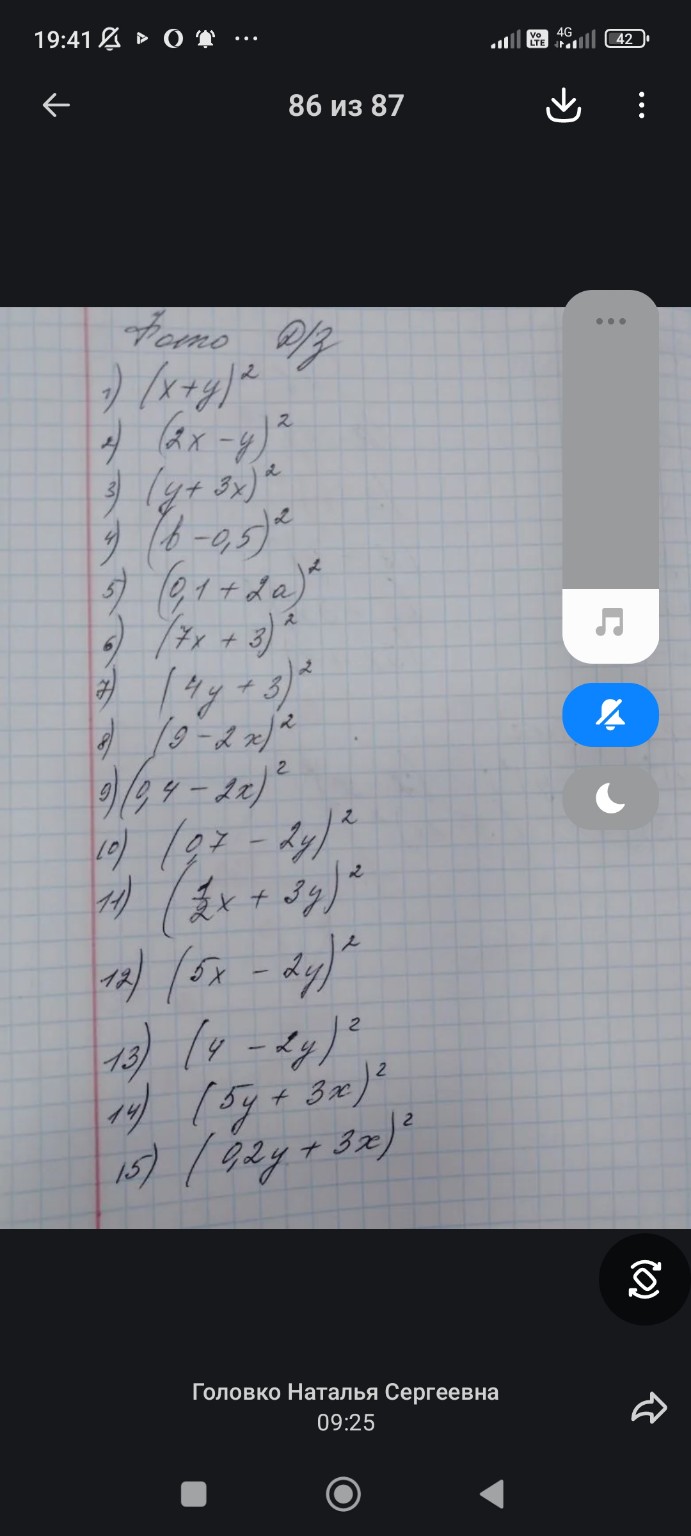 19:41 4G Vo LTE 42
86 из 87
Фото Д/З
1) (x+y)²
2) (2x-y)²
3) (y+3x)²
4) (b-0,5)²
5) (0,1+2a)²
6) (7x+3)²
7) (4y+3)²
8) (9-2x)²
9) (0,4-2x)²
10) (0,7-2y)²
11) (1/2x+3y)²
12) (5x-2y)²
13) (4-2y)²
14) (5y+3x)²
15) (0,2y+3x)²
Головко Наталья Сергеевна
09:25